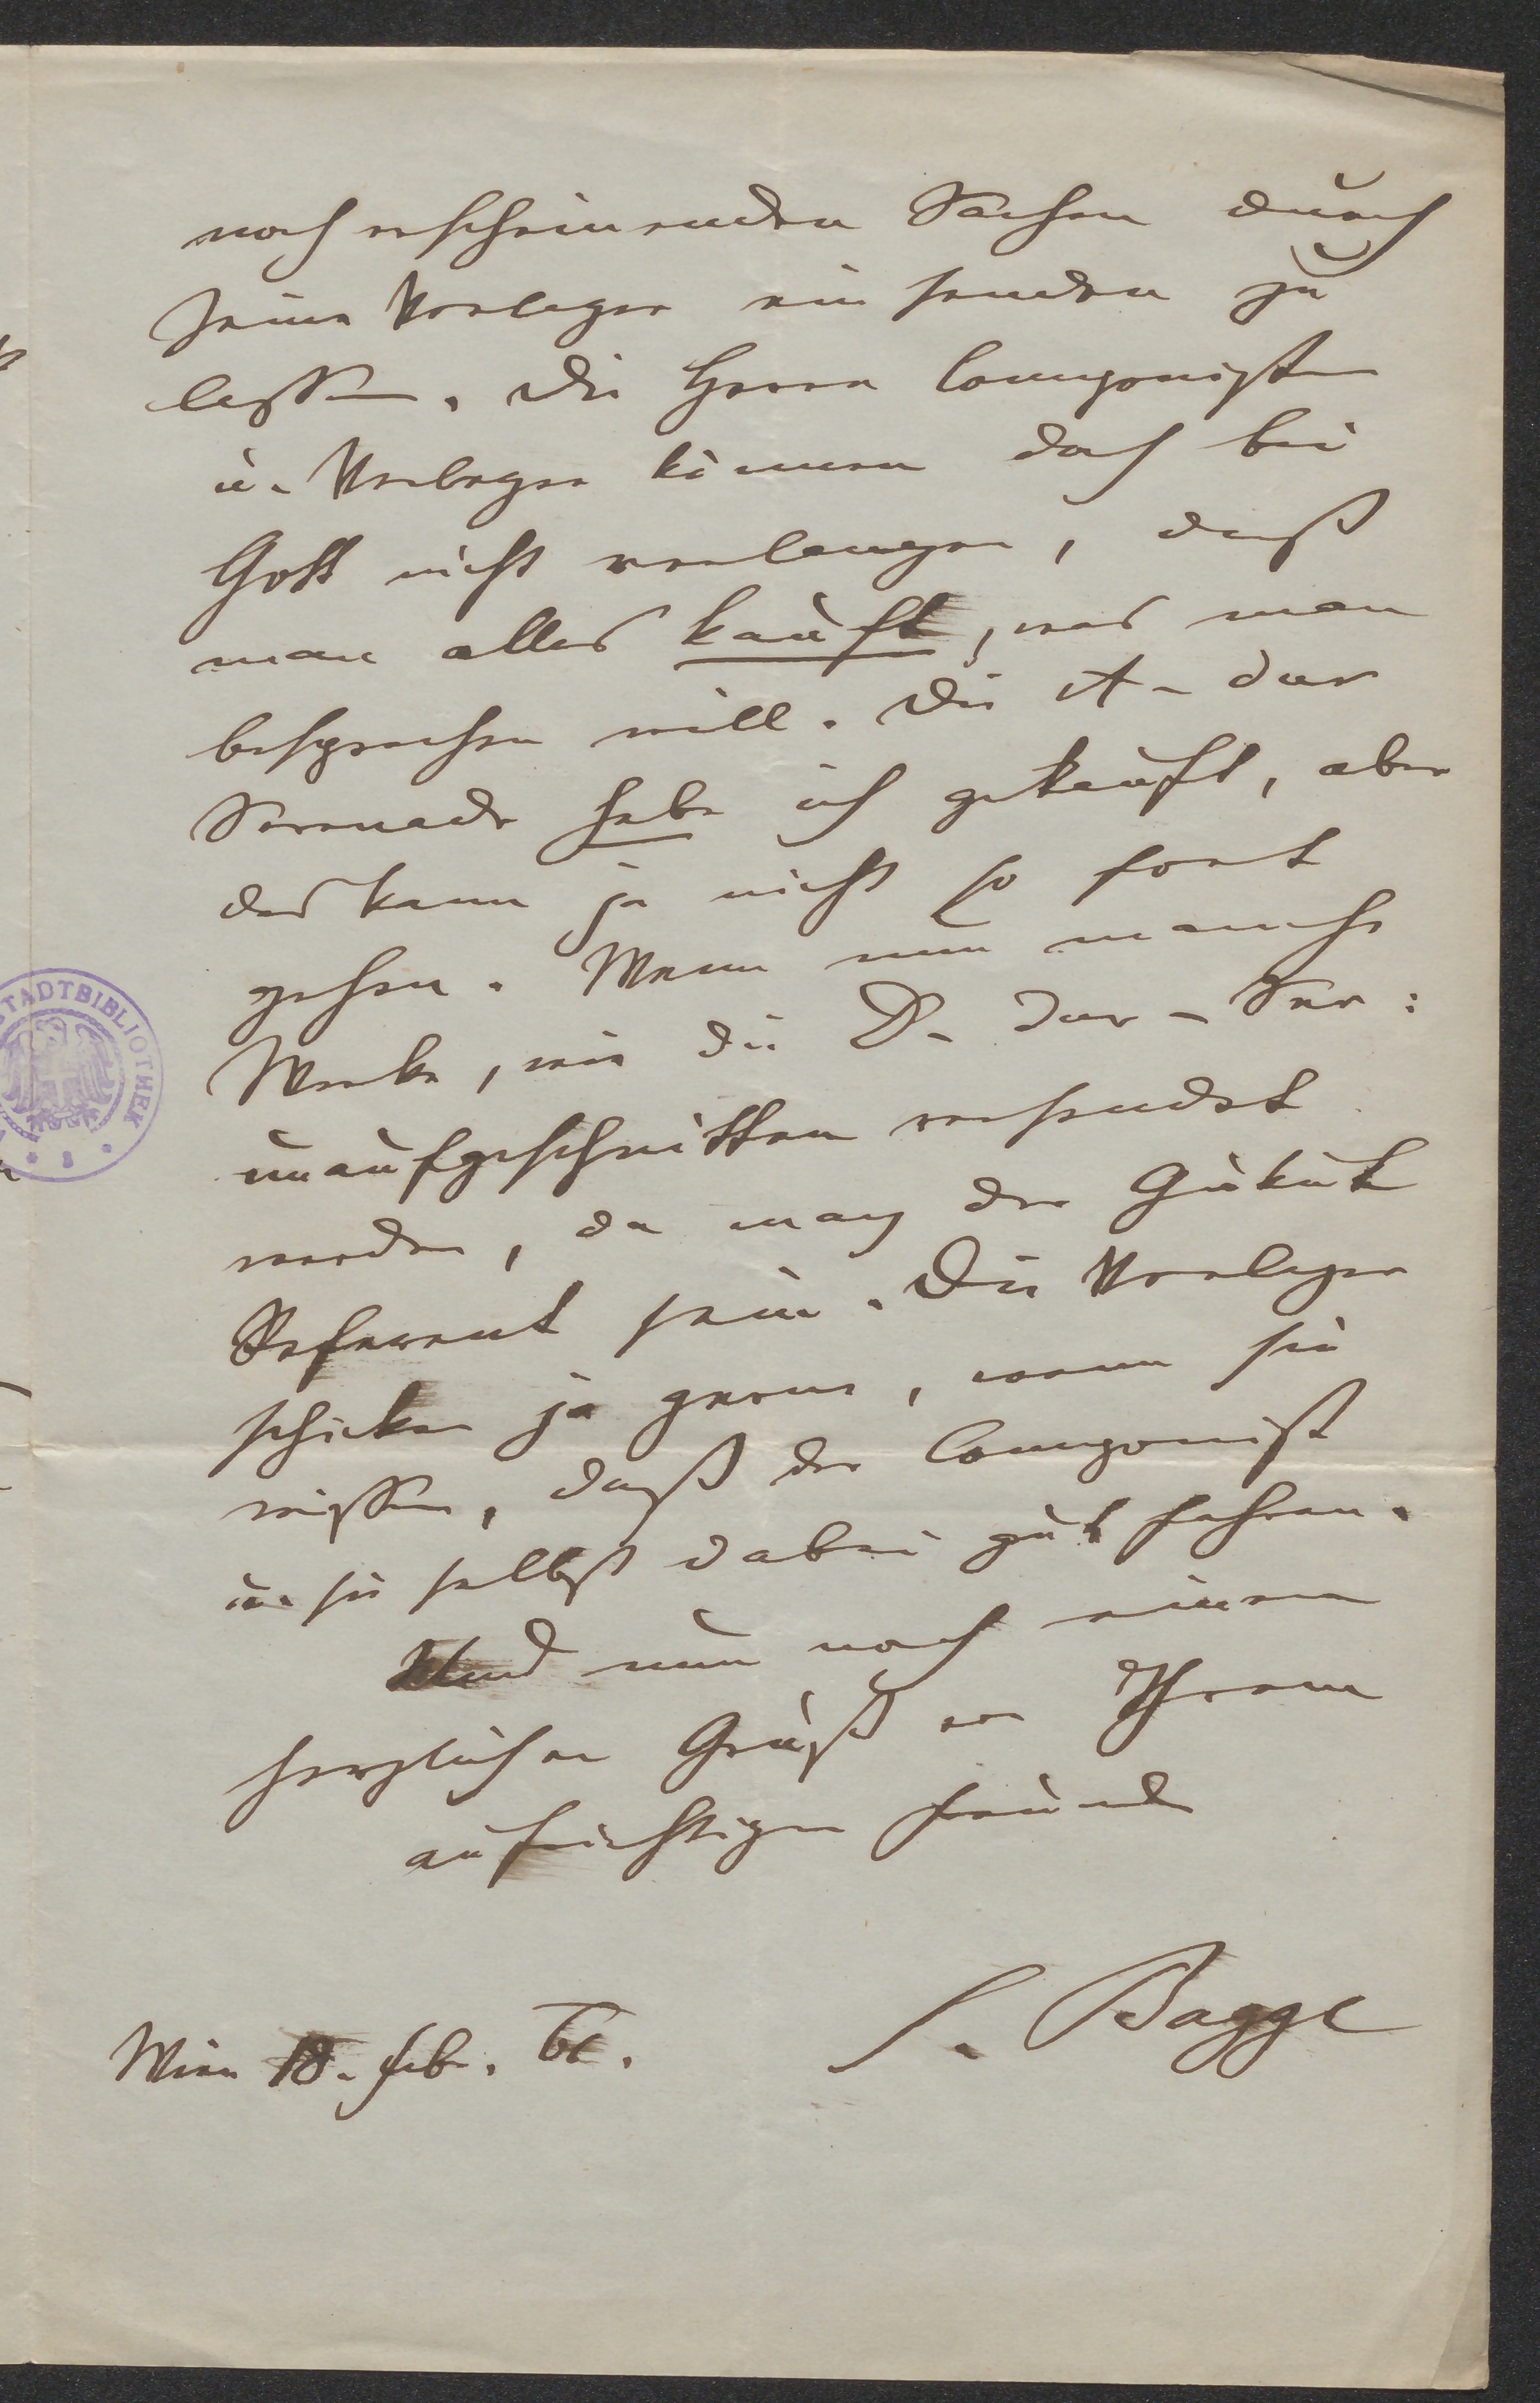 noch erscheinenden Sachen durch
seine Verleger einsenden zu
lassen. Die Herrn Componisten
u. Verleger können doch bei
Gott nicht verlangen, daß
man alles kauft, was man
besprechen will. Die A-dur
Serenade habe ich gekauft, aber
das kann ja nicht so fort
gehen. Wenn nun manche
Werke, wie die D-dur-Ser:
unaufgeschnitten versendet
werden, da mag der Gukuk
Referent sein. Die Verleger
schicken ja gerne, wenn sie
wissen, daß der Componist
u. sie selbst dabei gut fahren.
Und nun noch einen
herzlichen Gruß von Ihrem
aufrichtigen Freunde
S. Bagge
Wien 18. Feb. 61.
STADTBIBLIOTHEK